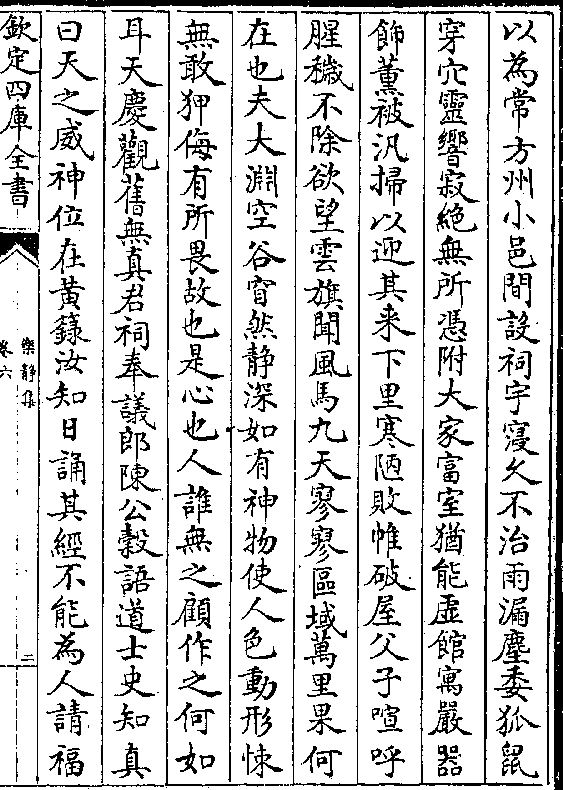 以為常方州小邑間設祠宇寖久不治雨漏塵委狐鼠
穿穴靈響寂絶無所憑附大家富室猶能虚館寓嚴器
飾薰袚汎掃以迎其来下里寒陋敗帷破屋父子喧呼
腥穢不除欲望雲旗聞風馬九天寥寥區域萬里果何
在也夫大淵空谷窅然静深如有神物使人色動形悚
無敢狎侮有所畏故也是心也人誰無之顧作之何如
耳天慶觀舊無真君祠奉議郎陳公㲄語道士史知真
曰天之威神位在黄籙汝知日誦其經不能為人請福
欽定四庫全書
樂静集
卷六
二